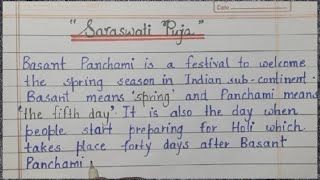 Date
"Saraswati Puja"
Basant Panchami is a festival to welcome
the spring season in Indian sub-continent.
Basant means 'spring' and Panchami means
'the fifth day'. It is also the day when
people start preparing for Holi which
takes place forty days after Basant
Panchami.